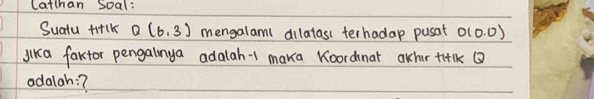 Latihan Soal:
Suatu titik Q (6.3) mengalami dilatasi terhadap pusat O(0.0)
jika faktor pengalinya adalah -1 maka Koordinat akhir titik Q
adalah:?